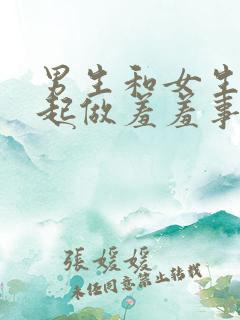 男生和女生
起做羞羞事
張媛媛
未经同意禁止转载